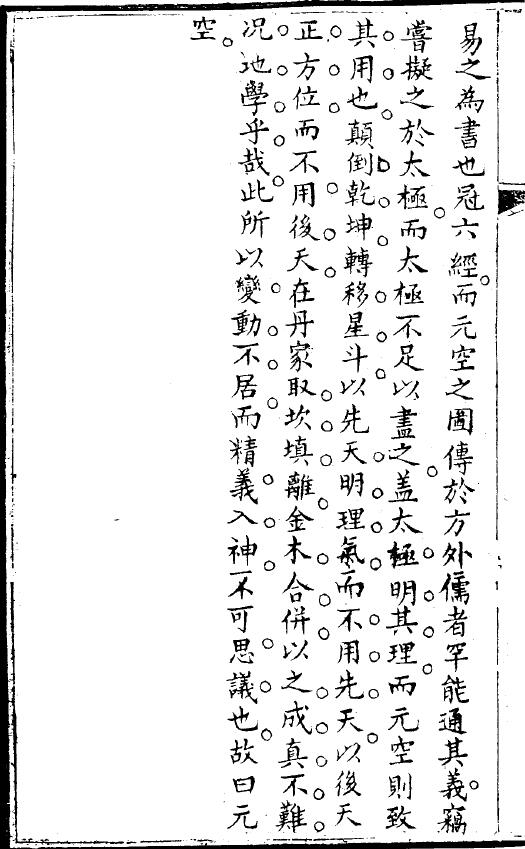 易之為書也冠六經而元空之圖傳於方外儒者罕能通其義竊
嘗擬之於太極而太極不足以盡之蓋太極明其理而元空則致
其用也顛倒乾坤轉移星斗以先天明理氣而不用先天以後天
正方位而不用後天在丹家取坎填離金木合併以之成真不難
况地學乎哉此所以變動不居而精義入神不可思議也故曰元
空